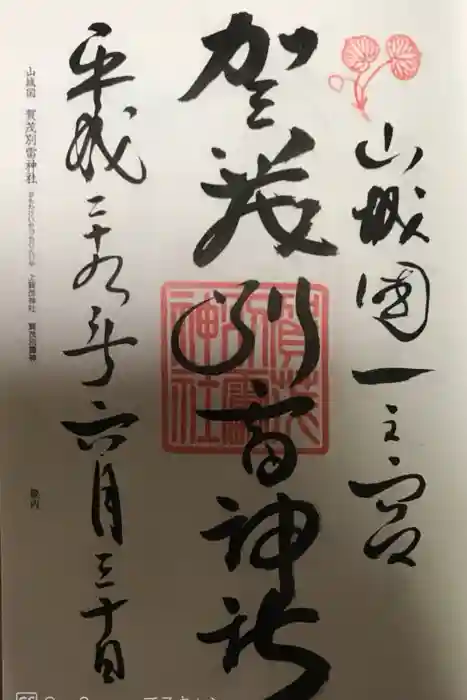 山城国一之宮
賀茂別雷神社
平成二十九年六月三十日
賀茂別雷神社
山城国 賀茂別雷神社 上賀茂神社 賀茂別雷神